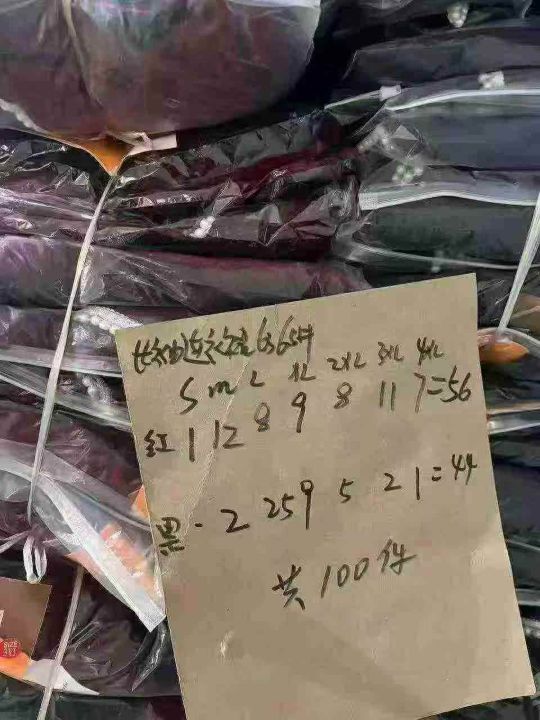 长袖连衣裙
S m L XL 2XL 3XL 4XL
红 1 12 8 9 8 11 7=56
黑 - 2 25 9 5 2 1=44
共100件
SIZE